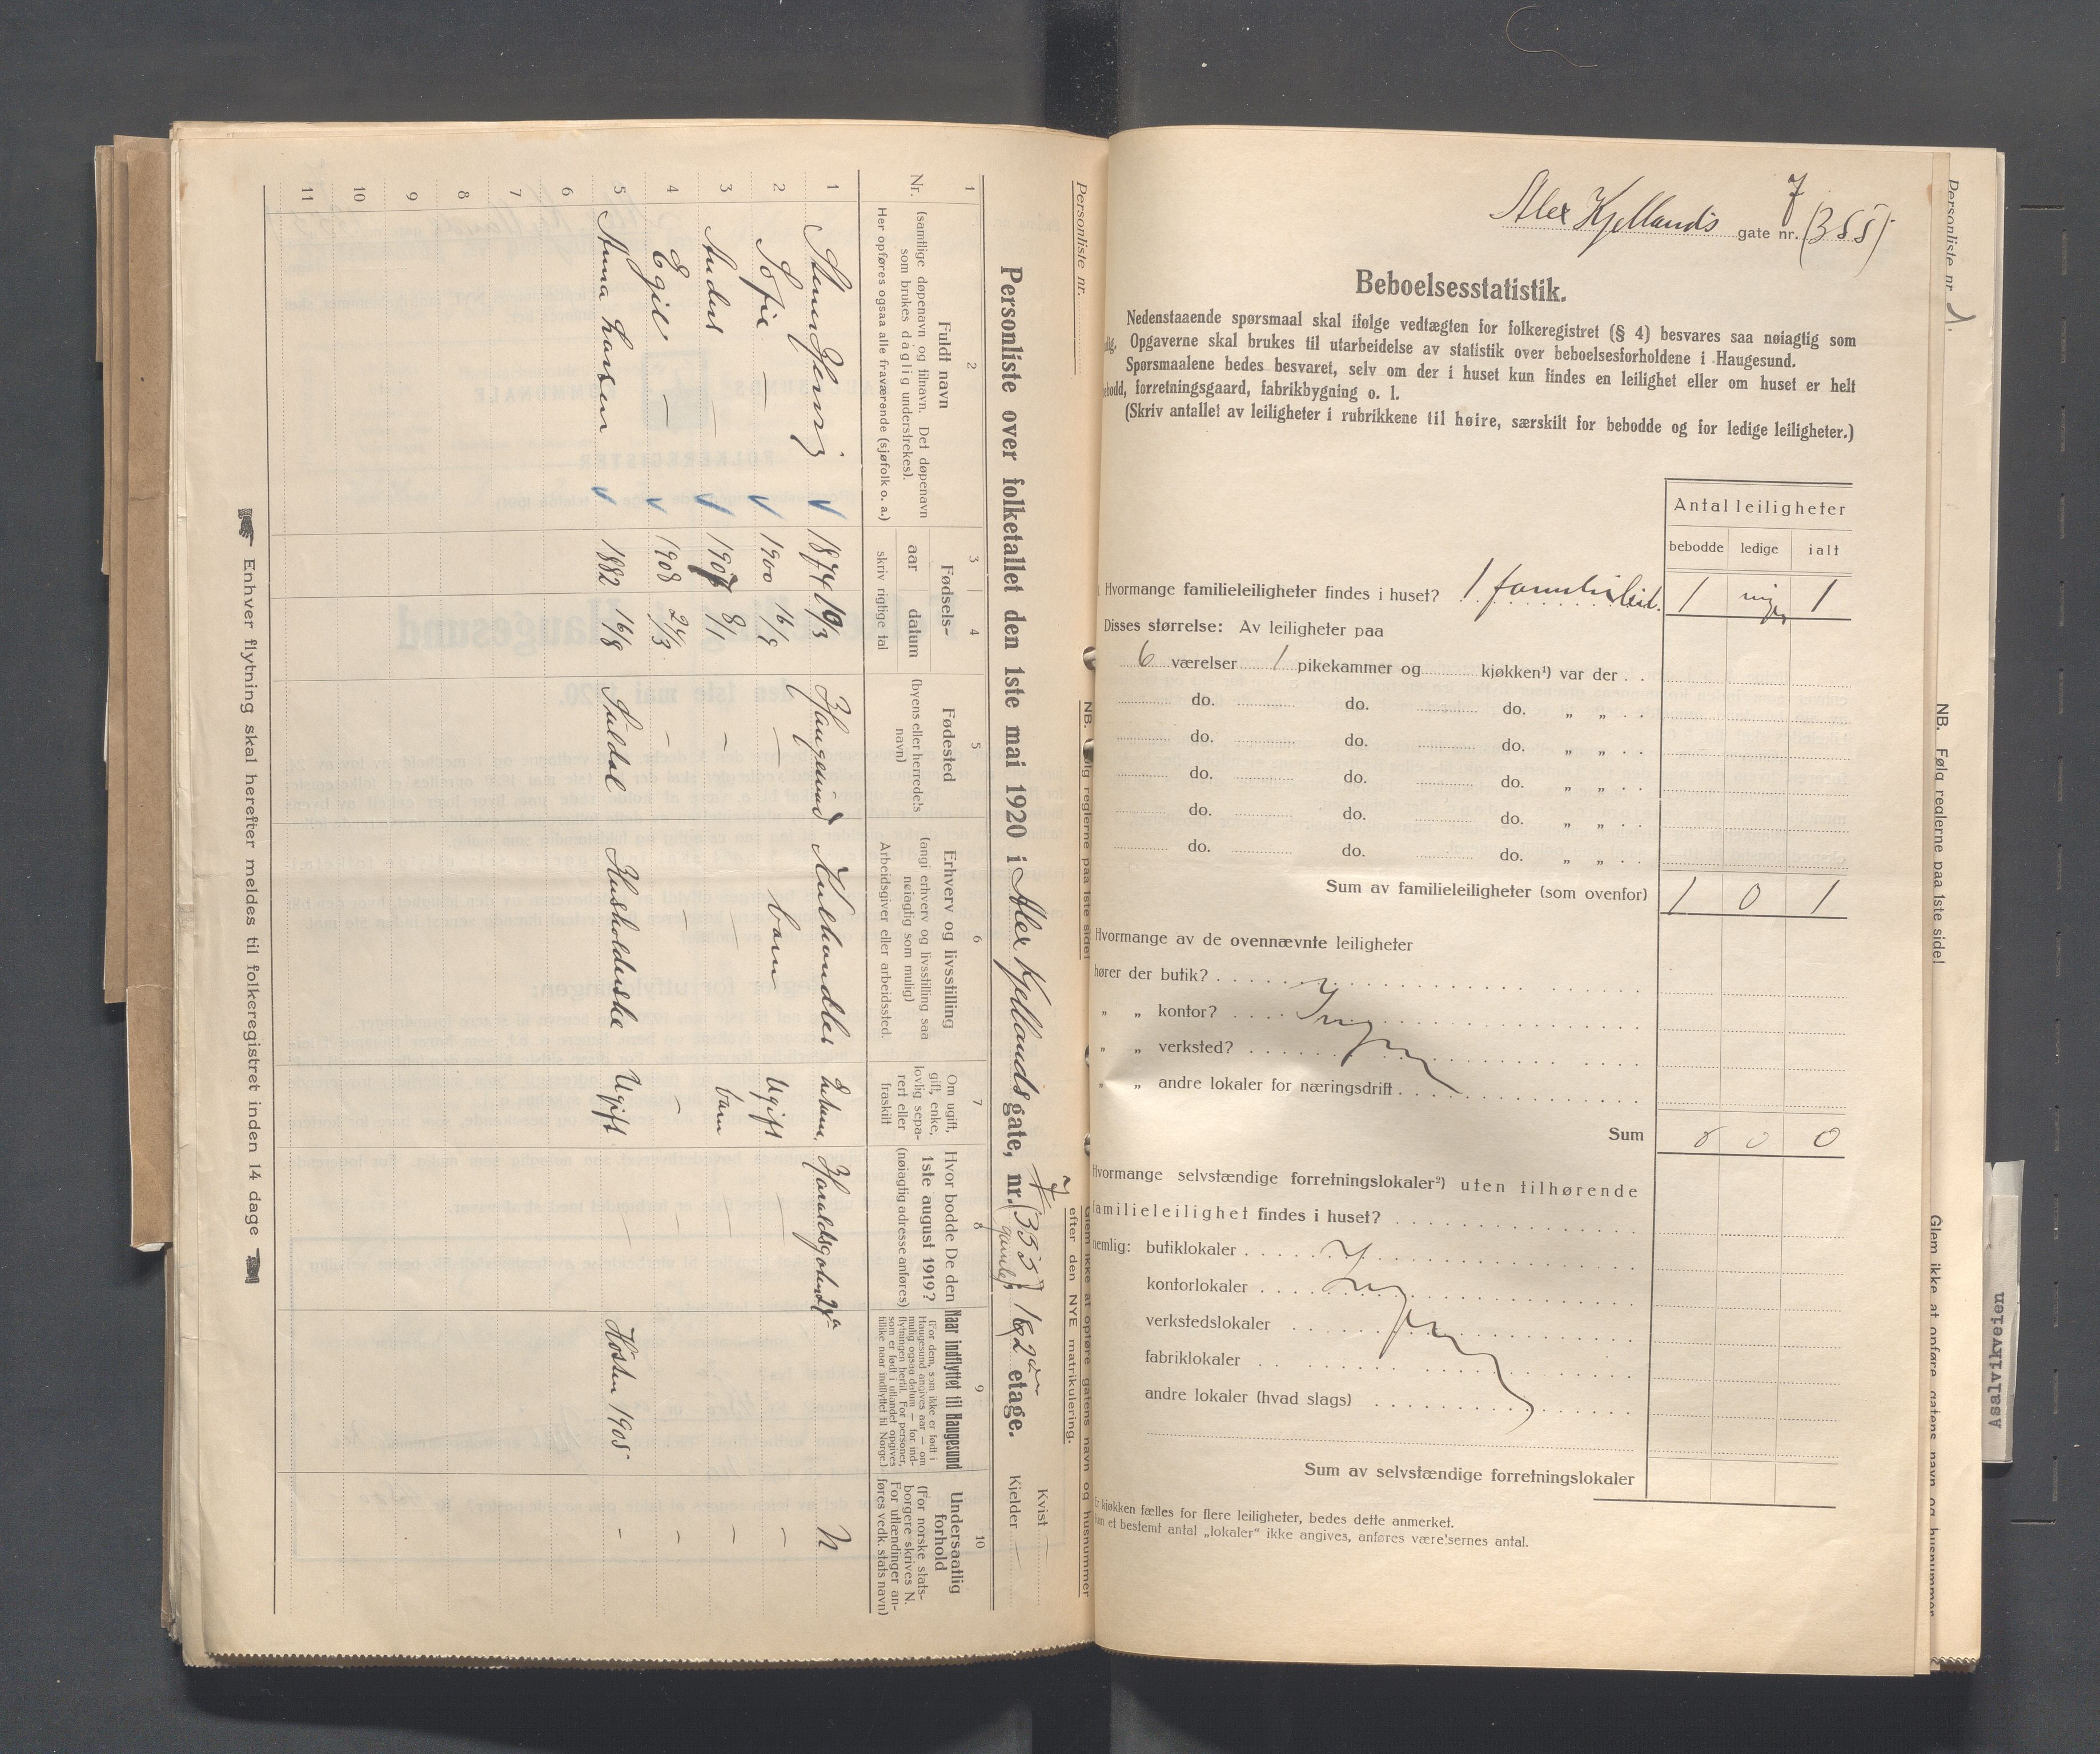 Personliste nr.
NB. Følg reglerne paa 1ste side!
Glem ikke at opføre gatens navn og husnummer
efter den NYE matrikulering.
Personliste over folketallet den 1ste mai 1920 i Alex Kjellands gate, nr. 7 (355) 1 & 2 etage.
Kvist —
Kjelder —
1 2 3 4 5 6 7 8 9 10
Nr.
Fuldt navn
(samtlige døpenavn og tilnavn. Det døpenavn
som brukes daglig understrekes).
Her opføres ogsaa alle fraværende (sjøfolk o. a.)
Fødsels-
aar datum
skriv rigtige tal
Fødested
(byens eller herredets
navn)
Erhverv og livsstilling
(angi erhverv og livsstilling saa
nøiagtig som mulig)
Arbeidsgiver eller arbeidssted.
Om ugift,
gift, enke,
lovlig sepa-
rert eller
fraskilt
Hvor bodde De den
1ste august 1919?
(nøiagtig adresse anføres)
Naar indflyttet til Haugesund
(For dem, som ikke er født i
Haugesund angives aar — om
mulig ogsaa datum — for ind-
flytningen hertil. For personer,
som er født i utlandet opgives
tillike naar indflyttet til Norge.)
Undersaatlig
forhold
(For norske stats-
borgere skrives N.
For utlændinger an-
føres vedk. stats navn)
1 1874 19/3 Haugesund Kulhandler Enkem. Haraldsgaten N
2 Sofie — 1900 — barn Ugift — —
3 Anders — 1907 8/1 — — barn — —
4 Egil — 1908 — — — — —
5 Anna Hansen 1882 16/8 Suldal Husholderske Ugift — Høsten 1905 —
6
7
8
9
10
11
Enhver flytning skal herefter meldes til folkeregistret inden 14 dage
Alex Kjellands gate nr. 7 (355)
Beboelsesstatistik.
Nedenstaaende spørsmaal skal ifølge vedtægten for folkeregistret (§ 4) besvares saa nøiagtig som
Opgaverne skal brukes til utarbeidelse av statistik over beboelsesforholdene i Haugesund.
Spørsmaalene bedes besvaret, selv om der i huset kun findes en leilighet eller om huset er helt
forretningsgaard, fabrikbygning o. l.
(Skriv antallet av leiligheter i rubrikkene til høire, særskilt for bebodde og for ledige leiligheter.)
Antal leiligheter
bebodde ledige ialt
Hvormange familieleiligheter findes i huset? 1 familieleil. 1 ingen 1
Disses størrelse: Av leiligheter paa
6 værelser 1 pikekammer og kjøkken¹) var der . .
do. do. do. „ „ . .
do. do. do. „ „ . .
do. do. do. „ „ . .
do. do. do. „ „ . .
do. do. do. „ „ . .
Sum av familieleiligheter (som ovenfor) 1 0 1
Hvormange av de ovennævnte leiligheter
hører der butik?
„ „ kontor? Ingen
„ „ verksted?
„ „ andre lokaler for næringsdrift
Sum 0 0 0
Hvormange selvstændige forretningslokaler²) uten tilhørende
familieleilighet findes i huset?
nemlig: butiklokaler
kontorlokaler Ingen
verkstedslokaler
fabriklokaler
andre lokaler (hvad slags)
Sum av selvstændige forretningslokaler
Er kjøkken fælles for flere leiligheter, bedes dette anmerket.
Kan et bestemt antal „lokaler“ ikke angives, anføres værelsernes antal.
Personliste nr. 1.
NB. Følg reglerne paa 1ste side!
Glem ikke at opføre gatens navn og husnummer
Asalvikveien